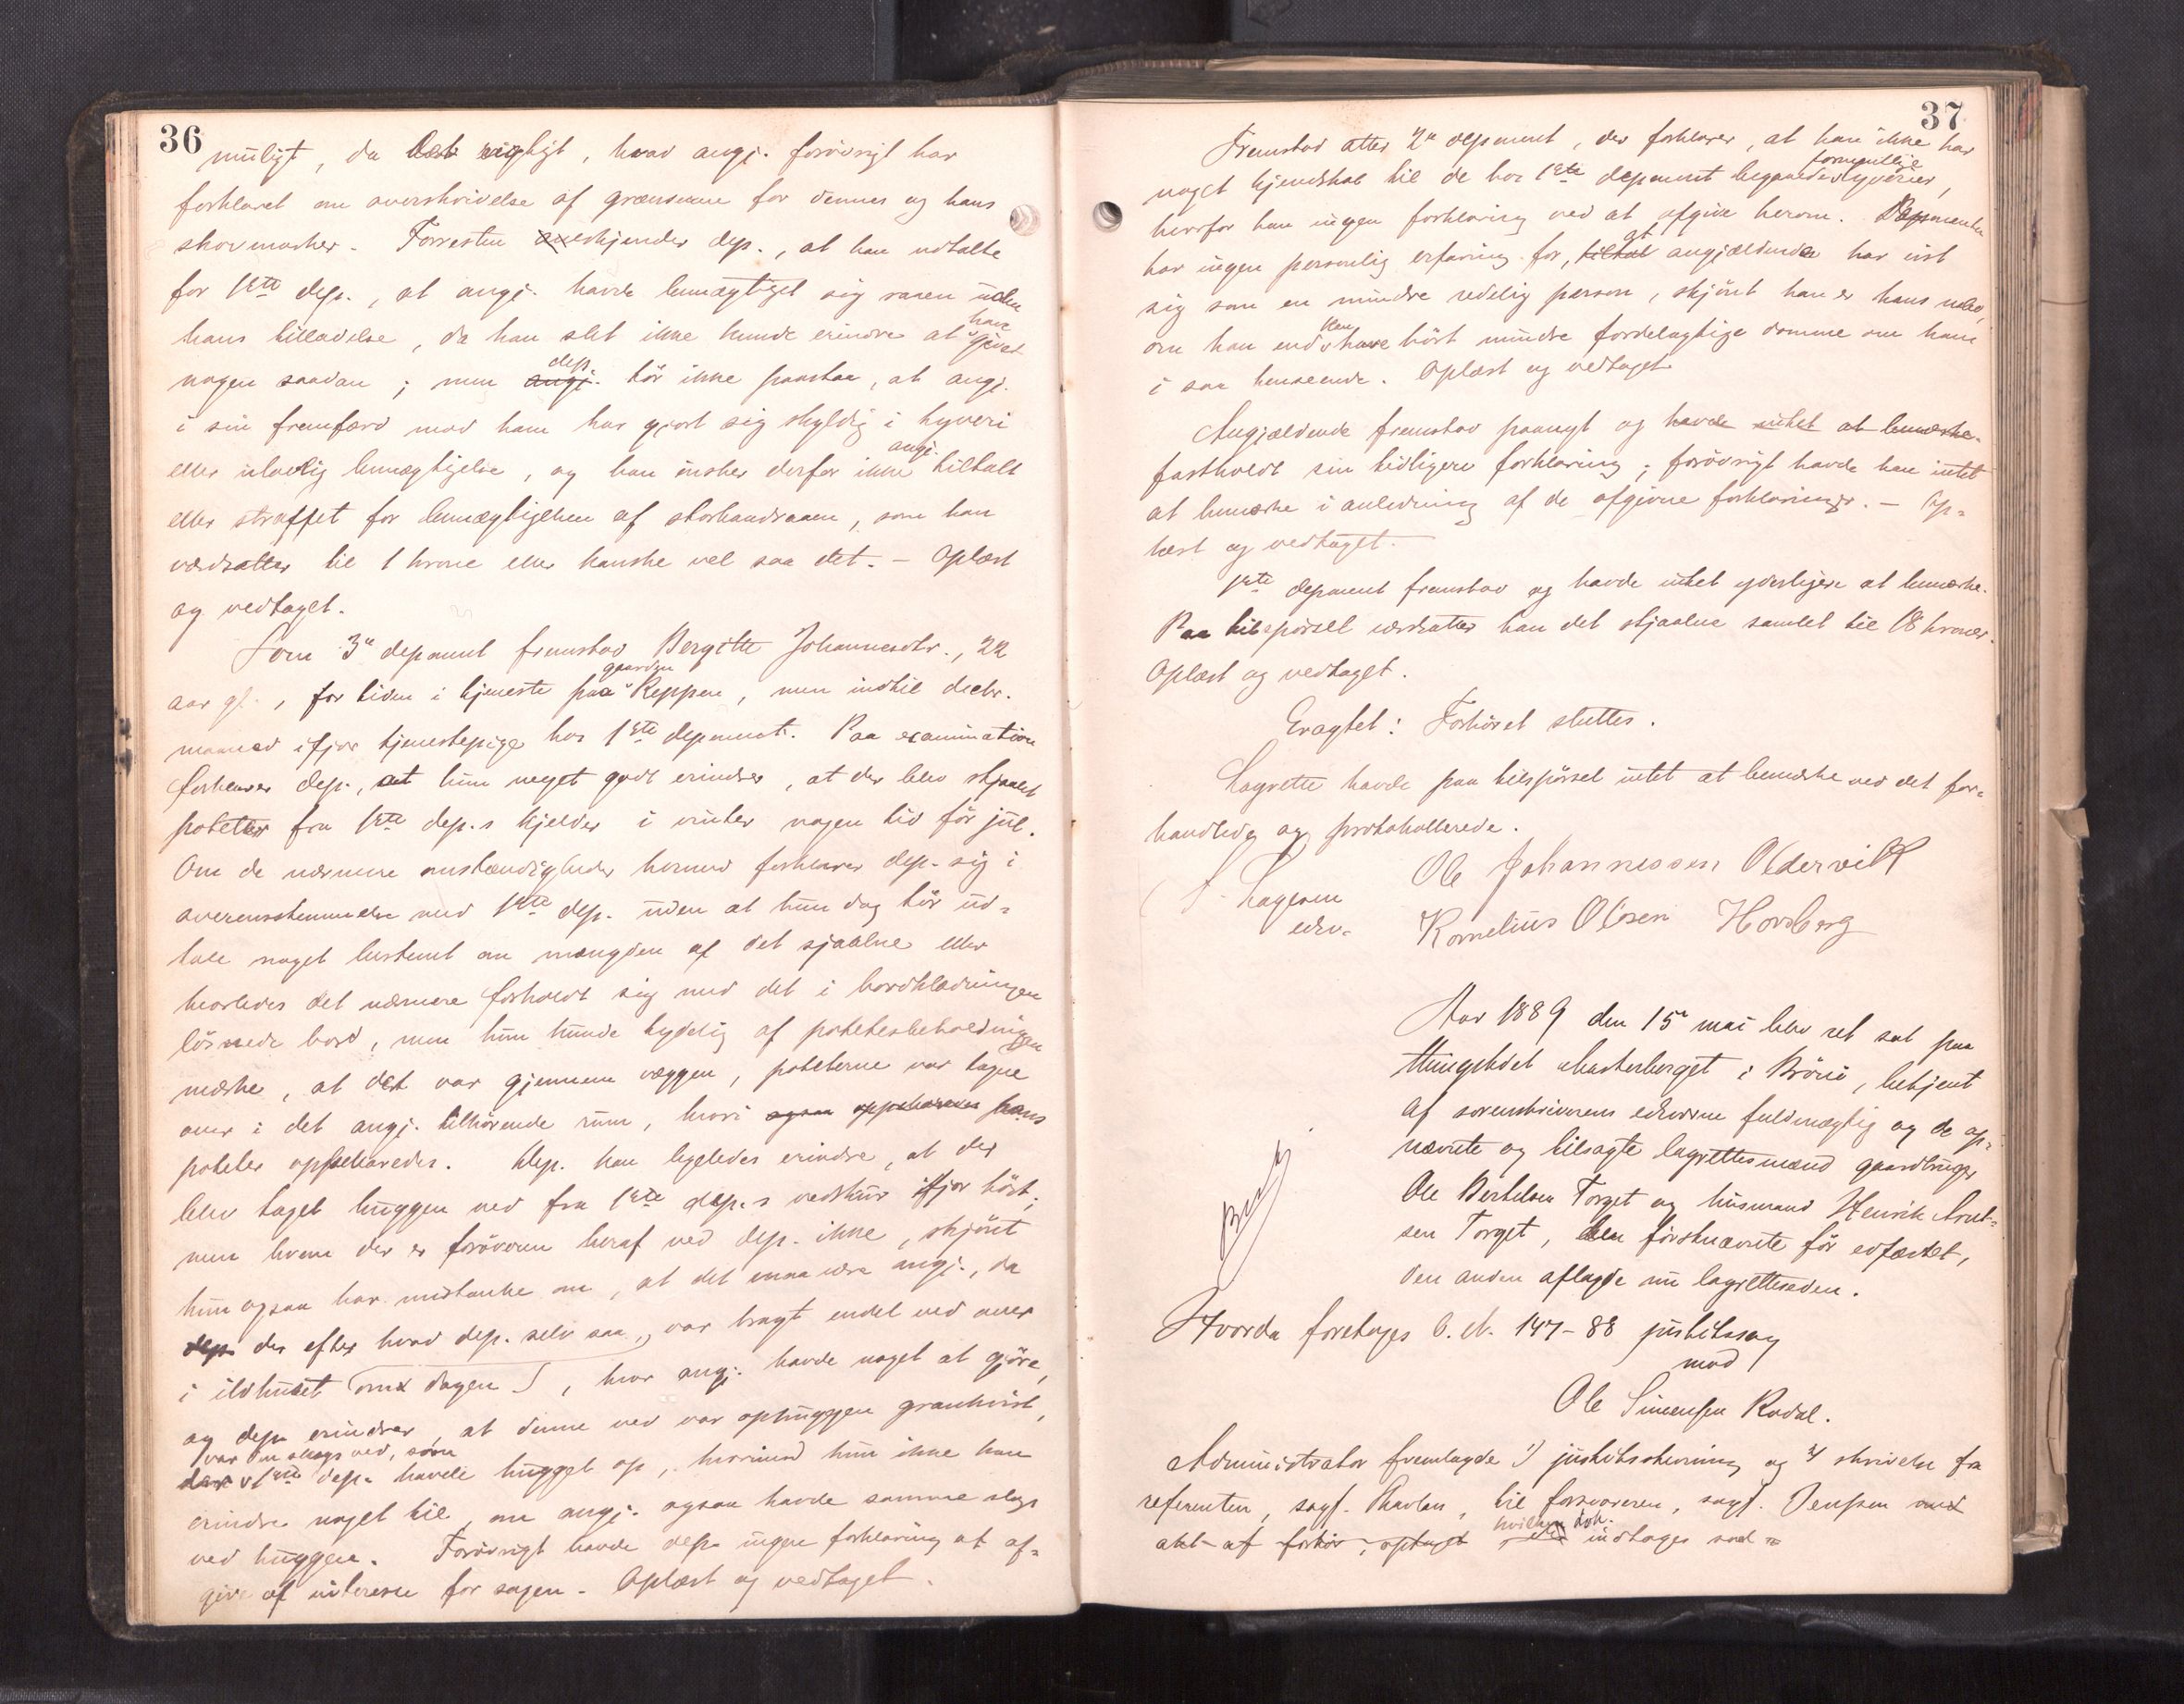 36
muligt, da det rigtigt, hvad angj. forövrigt har
forklaret om overskridelse af grænserne for dennes og hans
skovmarker. Forresten erkjender dep., at han udtalte
for 1ste dep., at angj. havde bemægtiget sig raaen uden
hans tilladelse, da han slet ikke kunde erindre at have givet
nogen saadan; men dep. tör ikke paastaa, at angj.
i sin fremfærd mod ham har gjort sig skyldig i tyveri
eller ulovlig bemægtigelse, og han önsker derfor ikke angj. tiltalt
eller straffet for bemægtigelsen af, som han
værdsætter til 1 krone eller kanske vel saa det. – Oplæst
og vedtaget.
Som 3e deponent fremstod Bergitte Johannesdtr., 22
aar gl., for tiden i tjeneste paa gaarden Reppen, men indtil decbr.
maaned ifjor tjenestepige hos 1ste deponent. Paa examination
forklarer dep., at hun meget godt erindrer, at der blev stjaalet
poteter fra 1ste dep.s kjelder i vinter nogen tid för jul.
Om de nærmere omstændigheder herved forklarer dep. sig i
overensstemmelse med 1ste dep. uden at hun dog tör ud-
tale noget bestemt om mængden af det sjaalne eller
hvorledes det nærmere forholdt sig med det i bordklædningen
lösnede bord, men hun kunde tydelig af potetesbeholdningen
mærke, at det var gjennem væggen, poteterne var tagne
over i det angj. tilhörende rum, hvori ogsaa oppebaredes hans
poteter oppebevaredes. Dep. kan ligeledes erindre, at der
blev taget huggen ved fra 1ste dep.s vedskur ifjor höst,
men hvem der er foröveren heraf ved dep. ikke, skjönt
hun ogsaa har mistanke om, at det maa være angj., da
dep. der efter hvad dep. selv saa, var bragt endel ved over
i ildhuset (om dagen), hvor angj. havde noget at gjöre,
og dep. erindrer, at denne ved var ophuggen grankvist,
var en slags ved, som
der 1ste dep. havde hugget op, hvorimod hun ikke kan
erindre noget til, om angj. ogsaa havde samme slags
ved huggen. Forövrigt havde dep. ingen forklaring at af-
give af interesse for sagen. Oplæst og vedtaget.
37
Fremstod atter 2e deponent, der forklarer, at han ikke har
noget kjendskab til de hos 1ste deponent begaaede formentlige tyverier,
hvorfor han ingen forklaring ved at afgive herom. Deponenten
har ingen personlig erfaring for, at angjældende har vist
sig som en mindre redelig person, skjönt han er hans nabo,
om han end kan have hört mindre fordelagtige domme om ham
i saa henseende. Oplæst og vedtaget
Angjældende fremstod paanyt og havde intet at bemærke.
fastholdt sin tidligere forklaring; forövrigt havde han intet
at bemærke i anledning af de afgivne forklaringer. – Op-
læst og vedtaget.
1ste deponent fremstod og havde intet yderligere at bemærke.
Paa tilspörsel værdsætter han det stjaalne samlet til 18 kroner.
Oplæst og vedtaget.
Eragtet: Forhöret sluttes.
Lagrette havde paa tilspörsel intet at bemærke ved det for-
handlede og protokollerede.
Lagesen
edsv.
Ole Johannessen Oldervik
Kornelius Olsen Horsberg
Aar 1889 den 15e mai blev ret sat paa
thingstedet Mosterberget i Brönö, betjent
af sorenskriverens edsvorne fuldmægtig og de op-
nævnte og tilsagte lagrettesmænd gaardbruger
Ole Bertelsen Torget og husmand Henrik Arnt-
sen Torget, den förstnævnte för edfæstet,
den anden aflagde nu lagretteseden.
Hvorda foretoges C. N. 147-88 justitssag
mod
Ole Simensen Rodal.
Administrator fremlagde 1) justitsstevning og 2) skrivelse fra
referenten, sagf. Havlan, til forsvareren, sagf. Jenssen med
akt af forhör, optaget hvilken dok. indtages saal=